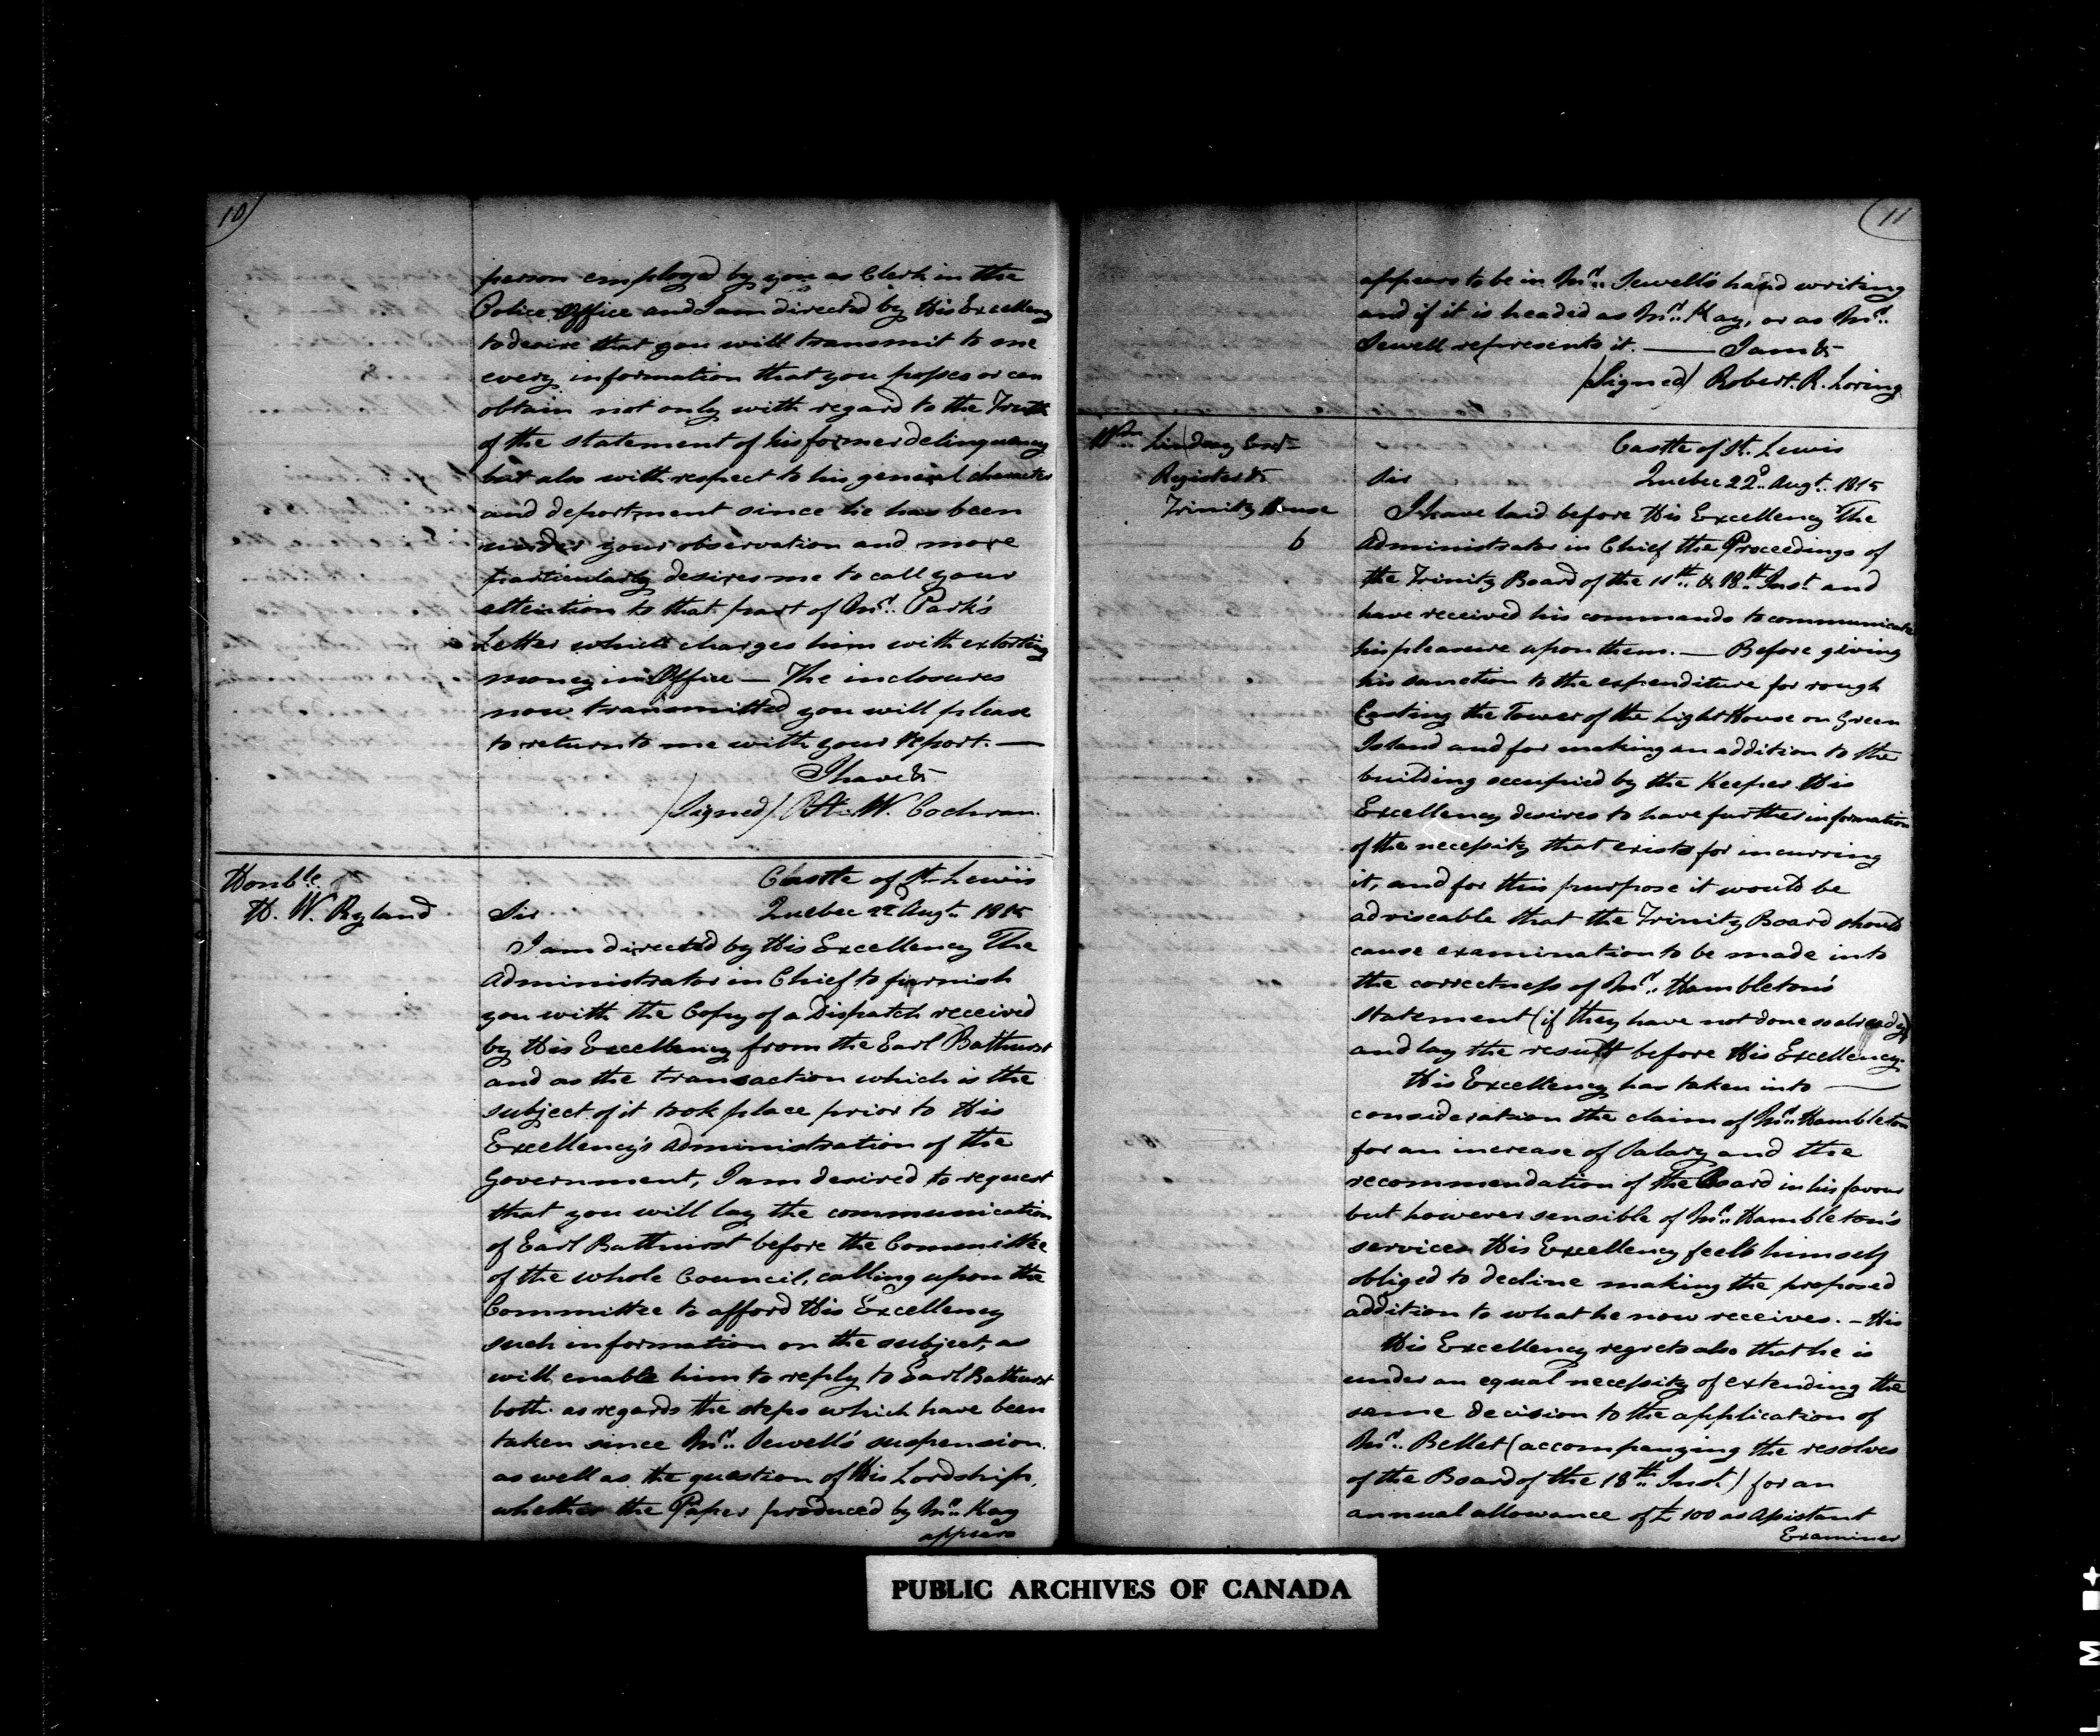 10
person employed by you as Clerk in the
Police Office and I am directed by His Excellency
to desire that you will transmit to me
every information that you possess or can
obtain not only with regard to the Truth
of the statement of his former delinquency
but also with respect to his general character
and deportment since he has been
under your observation and more
particularly desires me to call your
attention to that part of Mr. Park's
Letter which charges him with extorting
money in Office — The inclosures
now transmitted you will please
to return to me with your report. —
I have &
(Signed) A. W. Cochran.
Honble.
H. W. Ryland
Castle of St. Lewis
Sir Quebec 22d Augt. 1815
I am directed by His Excellency The
Administrator in Chief to furnish
you with the Copy of a Dispatch received
by His Excellency from the Earl Bathurst
and as the transaction which is the
subject of it took place prior to His
Excellency's administration of the
Government, I am desired to request
that you will lay the communication
of Earl Bathurst before the Committee
of the whole Council, calling upon the
Committee to afford His Excellency
such information on the subject, as
will enable him to reply to Earl Bathurst
both as regards the steps which have been
taken since Mr. Sewell's suspension.
as well as the question of His Lordship,
whether the Paper produced by Mr. Kay
appears
11
appears to be in Mr. Sewell's hand writing
and if it is headed as Mr. Kay, or as Mr.
Sewell represents it. — I am &
(Signed) Robert. R. Loring
Wm. Lindsay Esqr
Register &
Trinity House
6
Castle of St. Lewis
Sir Quebec 22d. Augt. 1815
I have laid before His Excellency The
Administrator in Chief the Proceedings of
the Trinity Board of the 11th. & 18th. Inst. and
have received his commands to communicate
his pleasure upon them. — Before giving
his sanction to the expenditure for rough
Casting the Tower of the Light House on Green
Island and for making an addition to the
building occupied by the Keeper His
Excellency desires to have further information
of the necessity that exists for incurring
it, and for this purpose it would be
adviseable that the Trinity Board should
cause examination to be made into
the correctness of Mr. Hambleton's
statement (if they have not done so already)
and lay the result before His Excellency.
His Excellency has taken into —
consideration the claim of Mr. Hambleton
for an increase of Salary and the
recommendation of the Board in his favour
but however sensible of Mr. Hambleton's
services His Excellency feels himself
obliged to decline making the proposed
addition to what he now receives. — His
His Excellency regrets also that he is
under an equal necessity of extending the
same decision to the application of
Mr. Bellet (accompanying the resolves
of the Board of the 18th. Inst.) for an
annual allowance of £100 as Assistant
Examiner
PUBLIC ARCHIVES OF CANADA